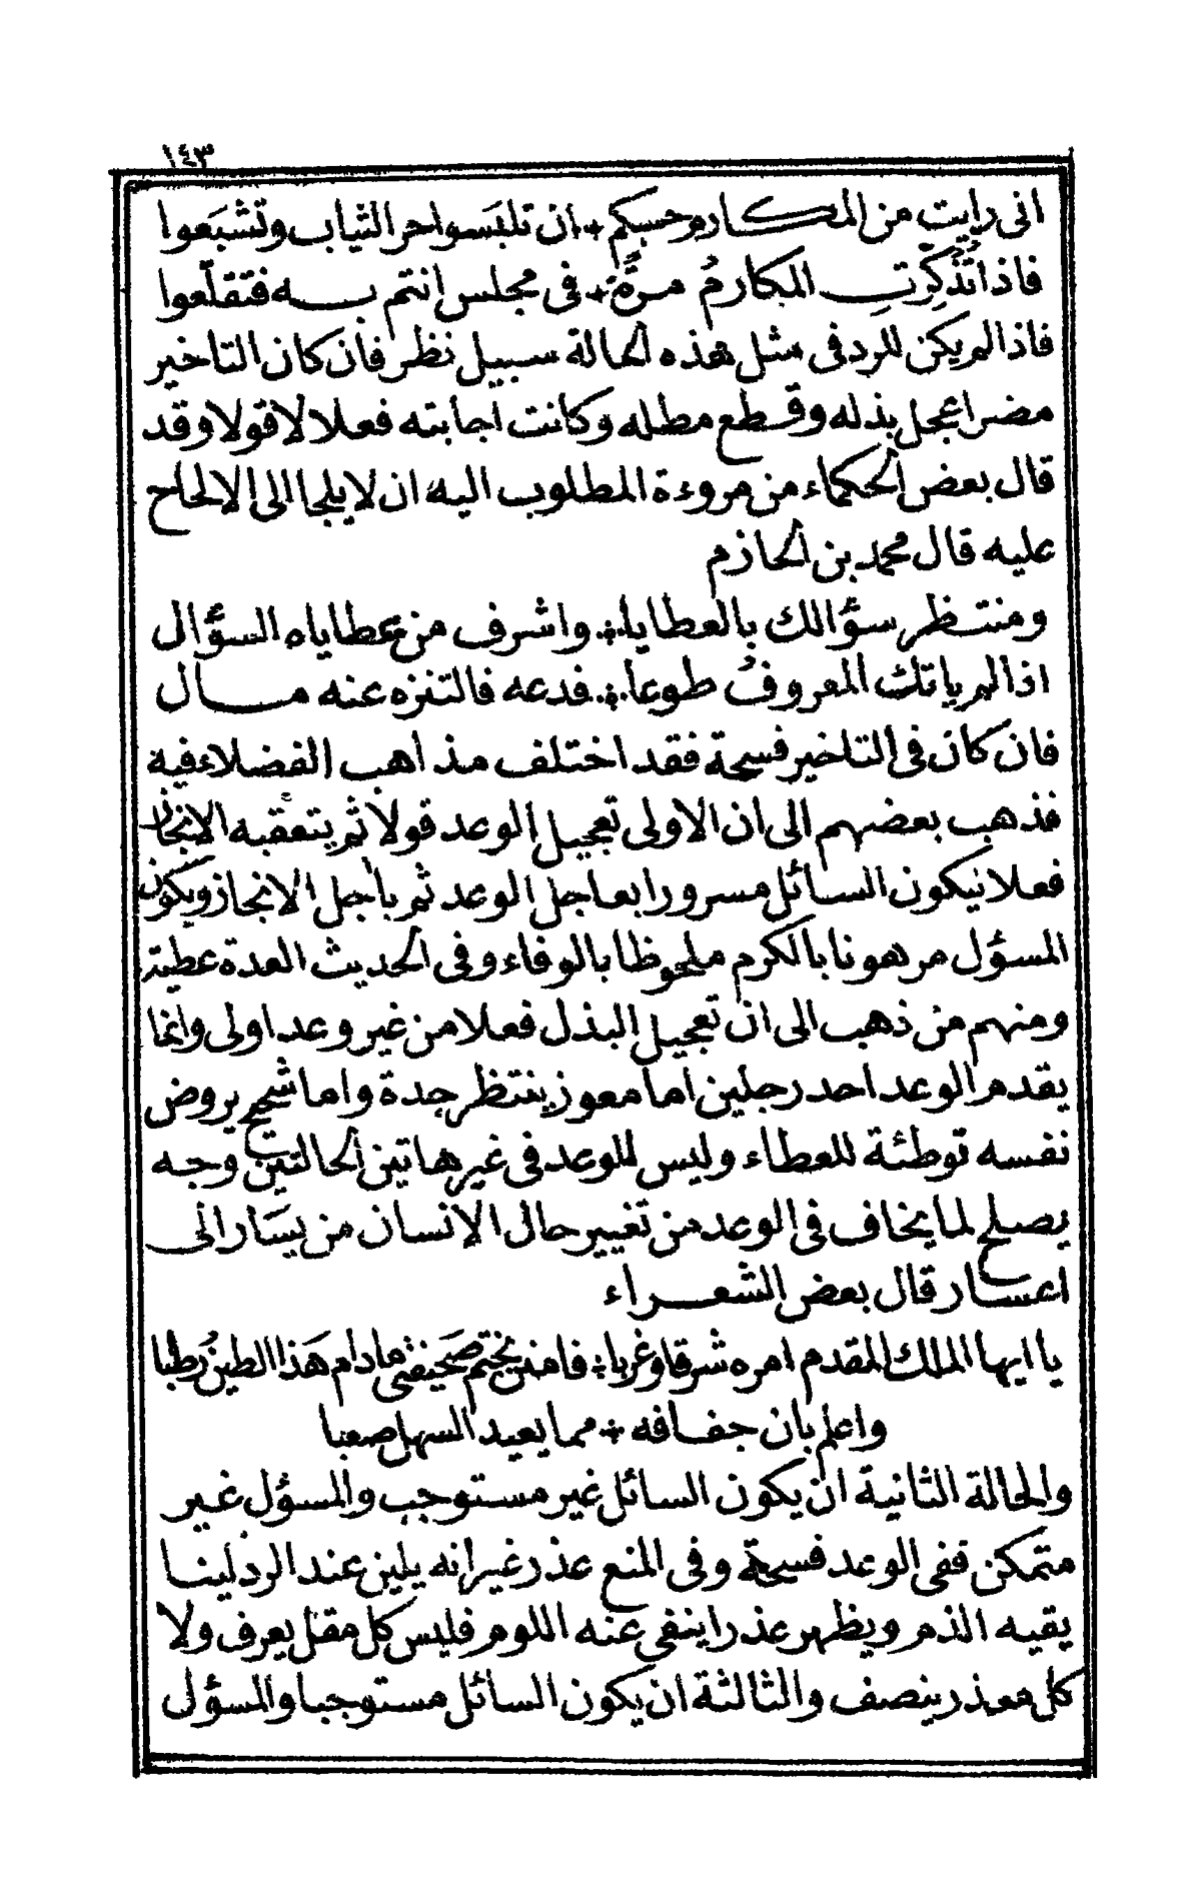 ١٤٣
انى رايت من المكارم حسبكم * ان تلبسوا حر الثياب وتشبعوا
فاذا تُذُكِّرتِ المكارمُ مرَّةً * فى مجلس انتم به فتقلّعوا
فاذا لم يكن للرد فى مثل هذه الحالة سبيل نظر فان كان التاخير
مضرا عجل بذله وقطع مطله وكانت اجابته فعلا لا قولا وقد
قال بعض الحكماء من مروءة المطلوب اليه ان لا يلجا الى الالحاح
عليه قال محمد بن الحازم
ومنتظر سؤالك بالعطايا * واشرف من عطاياه السؤال
اذا لم ياتك المعروفُ طوعا * فدعه فالتنزه عنه مال
فان كان فى التاخير فسحة فقد اختلف مذاهب الفضلاء فيه
فذهب بعضهم الى ان الاولى تعجيل الوعد قولا ثم يتعقبه الانجاز
فعلا نيكون السائل مسرورا بعاجل الوعد ثم بأجل الانجاز ويكون
المسؤل مرهونا بالكرم ملحوظا بالوفاء وفى الحديث العدة عطية
ومنهم من ذهب الى ان تعجيل البذل فعلا من غير وعد اولى وانما
يقدم الوعد احد رجلين اما معوز ينتظر جدة واما شحيح يروض
نفسه توطئة للعطاء وليس للوعد فى غير هاتين الحالتين وجه
يصلح لما يخاف فى الوعد من تغيير حال الانسان من يسار الى
اعسار قال بعض الشعراء
يا ايها الملك المقدم امره شرقا وغربا * فامنن بختم صحيفتى مادام هذا الطين رُطبا
واعلم بان جفافه * مما يعيد السهل صعبا
والحالة الثانية ان يكون السائل غير مستوجب والمسؤل غير
متمكن ففى الوعد فسحة وفى المنع عذر غير انه يلين عند الرد لينا
يقيه الذم ويظهر عذرا ينفى عنه اللوم فليس كل مقل يعرف ولا
كل معذر ينصف والثالثة ان يكون السائل مستوجبا والمسؤل